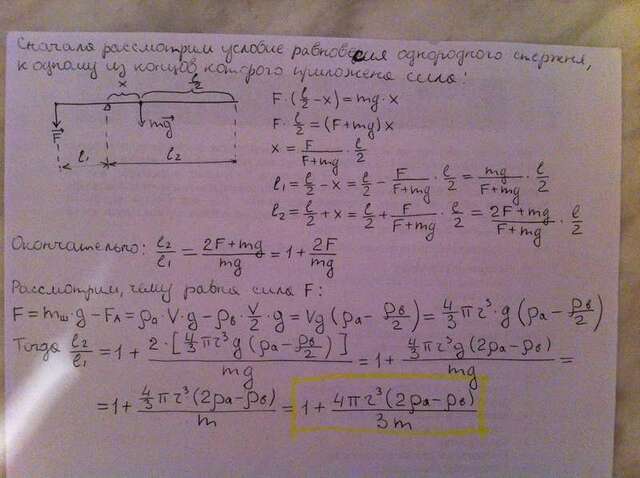 Сначала рассмотрим условие равновесия однородного стержня,
к одному из концов которого приложена сила:
x l/2
F⃗ mg⃗
l₁ l₂
F·(l/2 − x) = mg·x
F·l/2 = (F+mg)x
x = F/(F+mg) · l/2
l₁ = l/2 − x = l/2 − F/(F+mg) · l/2 = mg/(F+mg) · l/2
l₂ = l/2 + x = l/2 + F/(F+mg) · l/2 = (2F+mg)/(F+mg) · l/2
Окончательно: l₂/l₁ = (2F+mg)/mg = 1 + 2F/mg
Рассмотрим, чему равна сила F:
F = mш·g − FA = ρa·V·g − ρв·V/2·g = Vg(ρa − ρв/2) = 4/3 πr³·g(ρa − ρв/2)
Тогда l₂/l₁ = 1 + 2·[4/3 πr³g(ρa − ρв/2)]/mg = 1 + 4/3 πr³g(2ρa − ρв)/mg =
= 1 + 4/3 πr³(2ρa − ρв)/m = 1 + 4πr³(2ρa − ρв)/3m